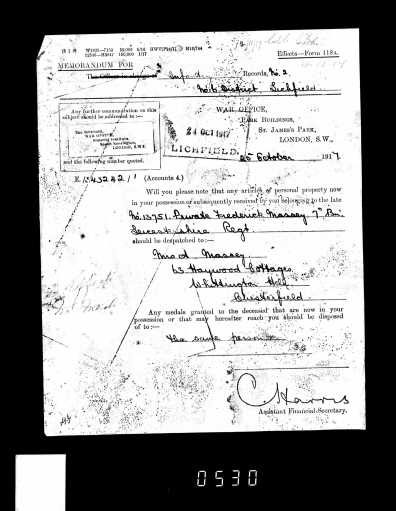 Effects—Form 118A.
MEMORANDUM FOR
Infd. Records, No. 2,
No. 6 District Lichfield
Any further communication on this
subject should be addressed to :—
The Secretary,
WAR OFFICE,
Imperial Institute,
South Kensington,
LONDON, S.W.7.
and the following number quoted.
WAR OFFICE,
PARK BUILDINGS,
ST. JAMES'S PARK,
LONDON, S.W.,
24 OCT 1917
LICHFIELD.
October 1917
(Accounts 4.)
Will you please note that any articles of personal property now
in your possession or subsequently received by you belonging to the late
No. 13751. Private Frederick Massey. 7th Bn.
Leicestershire Regt.
should be despatched to:—
Massey
63 Haywood Cottages,
Whittington Hill,
Chesterfield.
Any medals granted to the deceased that are now in your
possession or that may hereafter reach you should be disposed
of to:—
the same person
C Harris
Assistant Financial Secretary.
0530